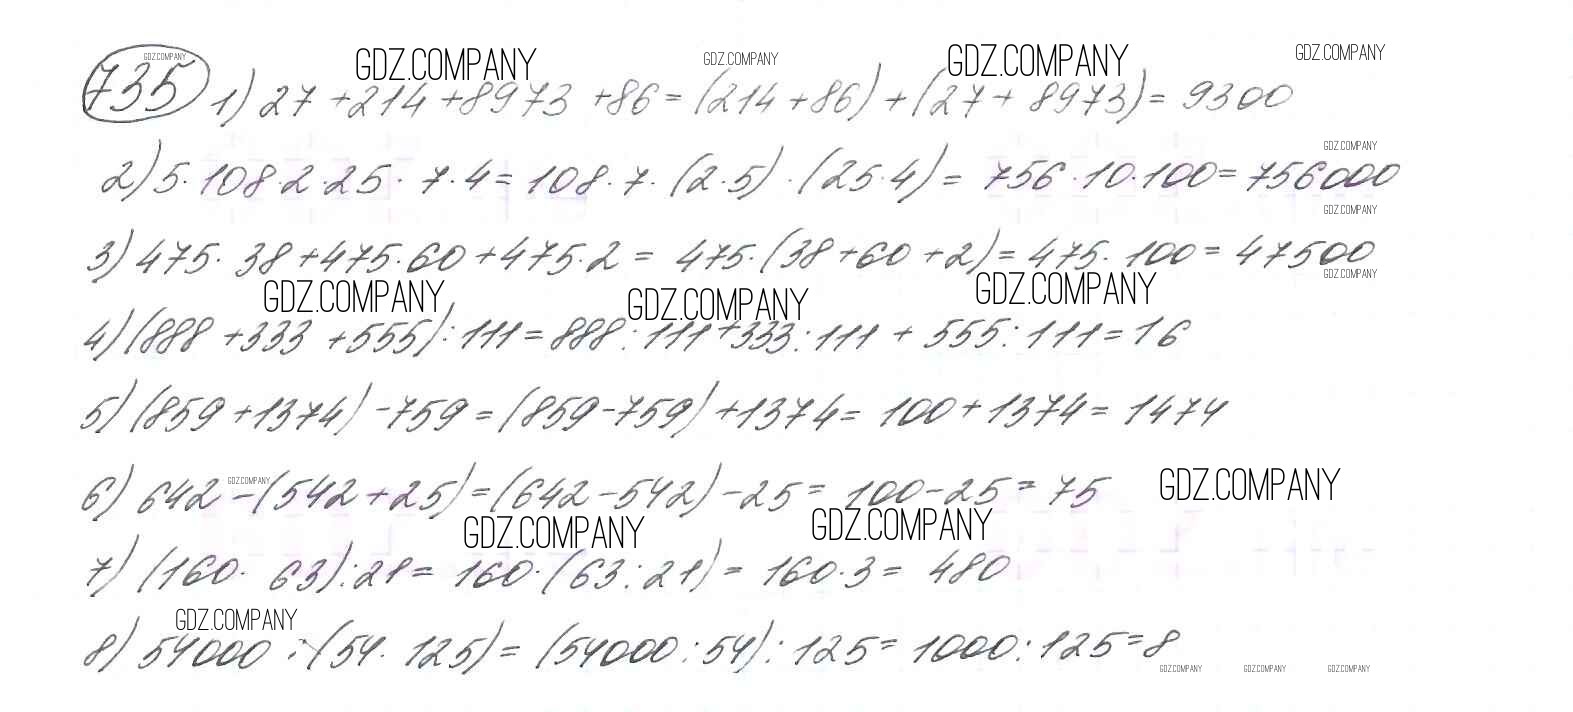 GDZ.COMPANY GDZ.COMPANY GDZ.COMPANY GDZ.COMPANY GDZ.COMPANY
735 1) 27 + 214 + 8973 + 86 = (214 + 86) + (27 + 8973) = 9300
GDZ.COMPANY
2) 5 · 108 · 2 · 25 · 7 · 4 = 108 · 7 · (2 · 5) · (25 · 4) = 756 · 10 · 100 = 756000
GDZ.COMPANY
3) 475 · 38 + 475 · 60 + 475 · 2 = 475 · (38 + 60 + 2) = 475 · 100 = 47500
GDZ.COMPANY GDZ.COMPANY GDZ.COMPANY GDZ.COMPANY
4) (888 + 333 + 555) : 111 = 888 : 111 + 333 : 111 + 555 : 111 = 16
5) (859 + 1374) - 759 = (859 - 759) + 1374 = 100 + 1374 = 1474
GDZ.COMPANY GDZ.COMPANY
6) 642 - (542 + 25) = (642 - 542) - 25 = 100 - 25 = 75
GDZ.COMPANY GDZ.COMPANY
7) (160 · 63) : 21 = 160 · (63 : 21) = 160 · 3 = 480
GDZ.COMPANY
8) 54000 : (54 · 125) = (54000 : 54) : 125 = 1000 : 125 = 8
GDZ.COMPANY GDZ.COMPANY GDZ.COMPANY